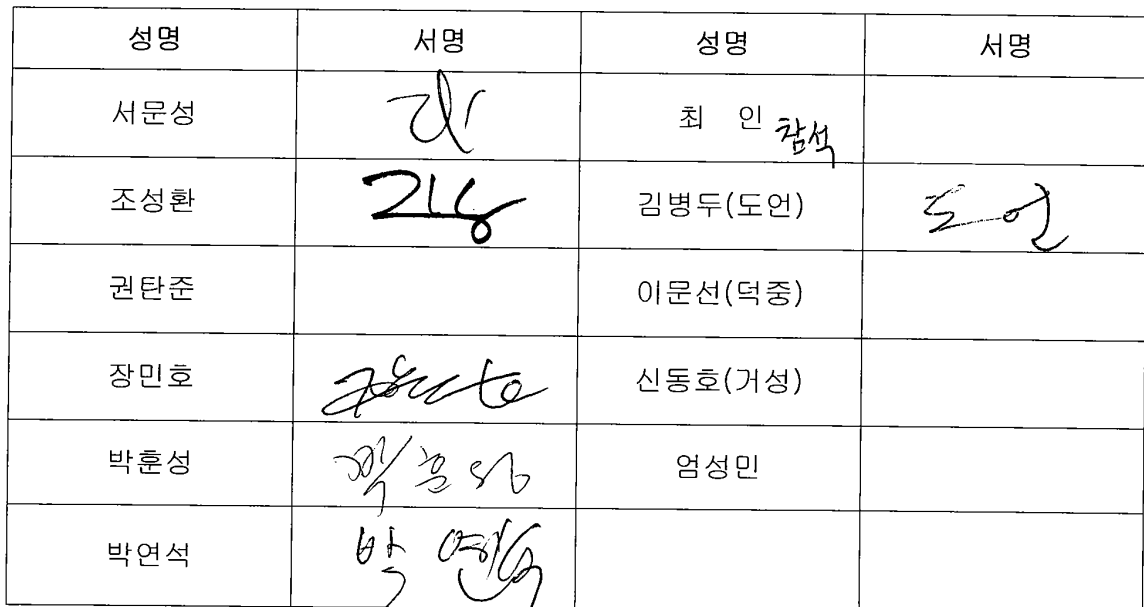 성명 서명 성명 서명
서문성 최 인 참석
조성환 김병두(도언) 도언
권탄준 이문선(덕중)
장민호 신동호(거성)
박훈성 박훈성 엄성민
박연석 박연석